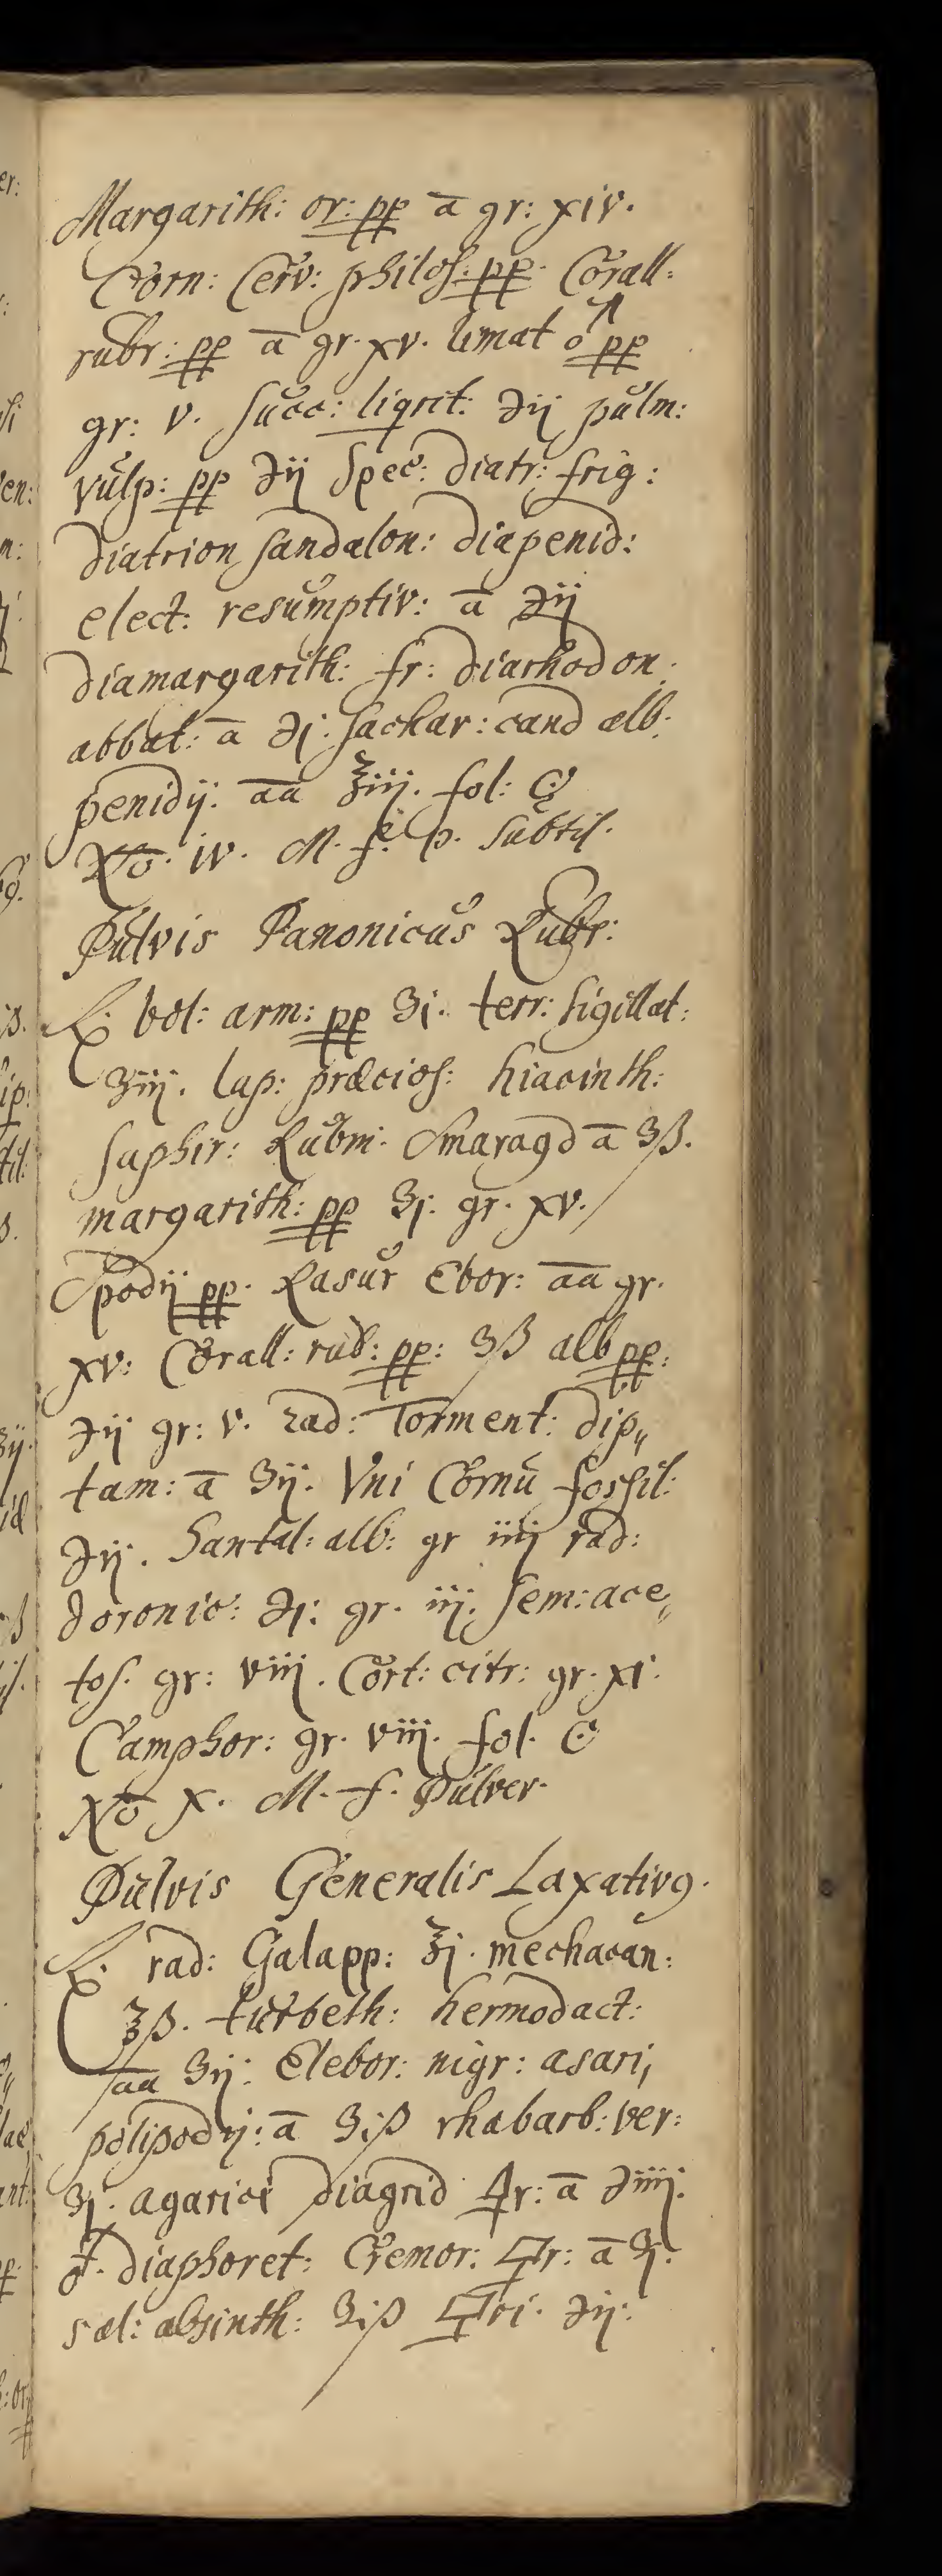 Margarith: or: pp ā gr: xiv.
Corn: Cerv: philos: pp. Corall:
rubr: pp ā gr. xv. limat ♂ pp
gr: v. succ: liqrit: ℈ij pulm:
vulp: pp ℈ij Spec: diatr: frig:
diatrion sandalon: diapenid:
elect: resumptiv: ā ℈ij
diamargarith: fr: diarhodon.
abbat: ā ℈j: sachar: cand alb:
penidij: āā ℥iij. fol:
No. iv. M. f. p. subtil.
Pulvis Panonicus Rubr:
℞. bol: arm: pp ʒj. terr: sigillat:
ʒiij. lap: præcios: hiacinth:
saphir: Rubin: Smaragd ā ʒß.
margarith: pp ʒj: gr. xv.
Spodij pp. Rasur Ebor: āā gr.
xv: Corall: rub: pp: ʒß alb pp:
℈ij gr: v. rad: Torment: dip„
tam: ā ʒij. Vni Cornu fossil:
℈ij. Santal: alb: gr iiij rad:
doronic: ℈j: gr. iij. sem: ace„
tos. gr: viij. Cort: citr: gr. xi.
Camphor: gr. viij. fol.
No X. M. f. Pulver.
Pulvis Generalis Laxativ9.
℞. rad: Galapp: ℥j. mechacan:
℥ß. turbeth: hermodact:
āā ʒij: Elebor: nigr: asari,
polipodij: ā ʒiß rhabarb: ver:
ʒj. agarici diagrid 🜿r: ā ℈iiij.
♁. diaphoret: Cremor: 🜿r: ā ʒj.
sal: absinth: ʒiß 🜿ri. ℈ij: